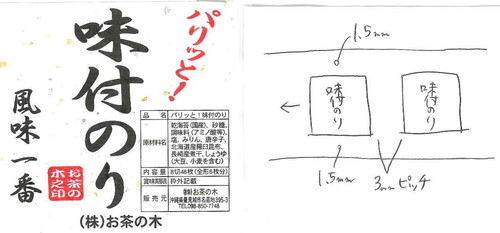 パリッと!
味付のり
風味一番
お茶の
木之印
品名 パリッと!味付のり
原材料名 乾海苔(国産)、砂糖、
調味料(アミノ酸等)、
塩、みりん、唐辛子、
北海道産羅臼昆布、
長崎産煮干、しょうゆ
(大豆、小麦を含む)
内容量 8切48枚(全形6枚分)
賞味期限 枠外記載
販売元 ㈱お茶の木
沖縄県豊見城市名嘉地395-3
TEL098-850-7748
(株)お茶の木
1.5mm
味付のり
味付のり
←
1.5mm
3mmピッチ